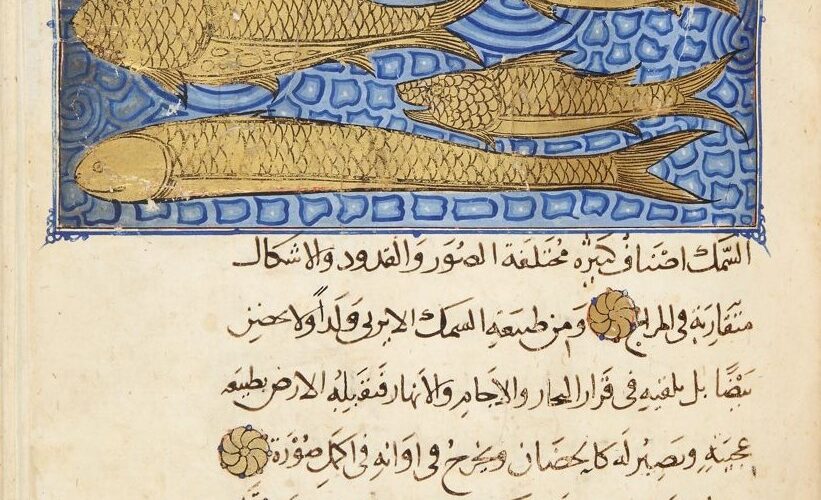 السَّمَك اصْنَافٌ كَثِيرَة مُخْتَلَفَة الصُّوَر وَالقُدود وَالاشكال
مُتَقَارِبَة فى المزاج وَمِن طَبيعَةِ السَمَك الا يربى وَلَداً ولا يحضن
بَيْضًا بل يلقيه فى قَرَار البحار والاجَامِ وَالانهار فَتقبَلهُ الارض بطبيعه
عجيبَةٍ وتصير له كالحضان ويخرجُ فى اوانه فى اكمل صُوْرَة